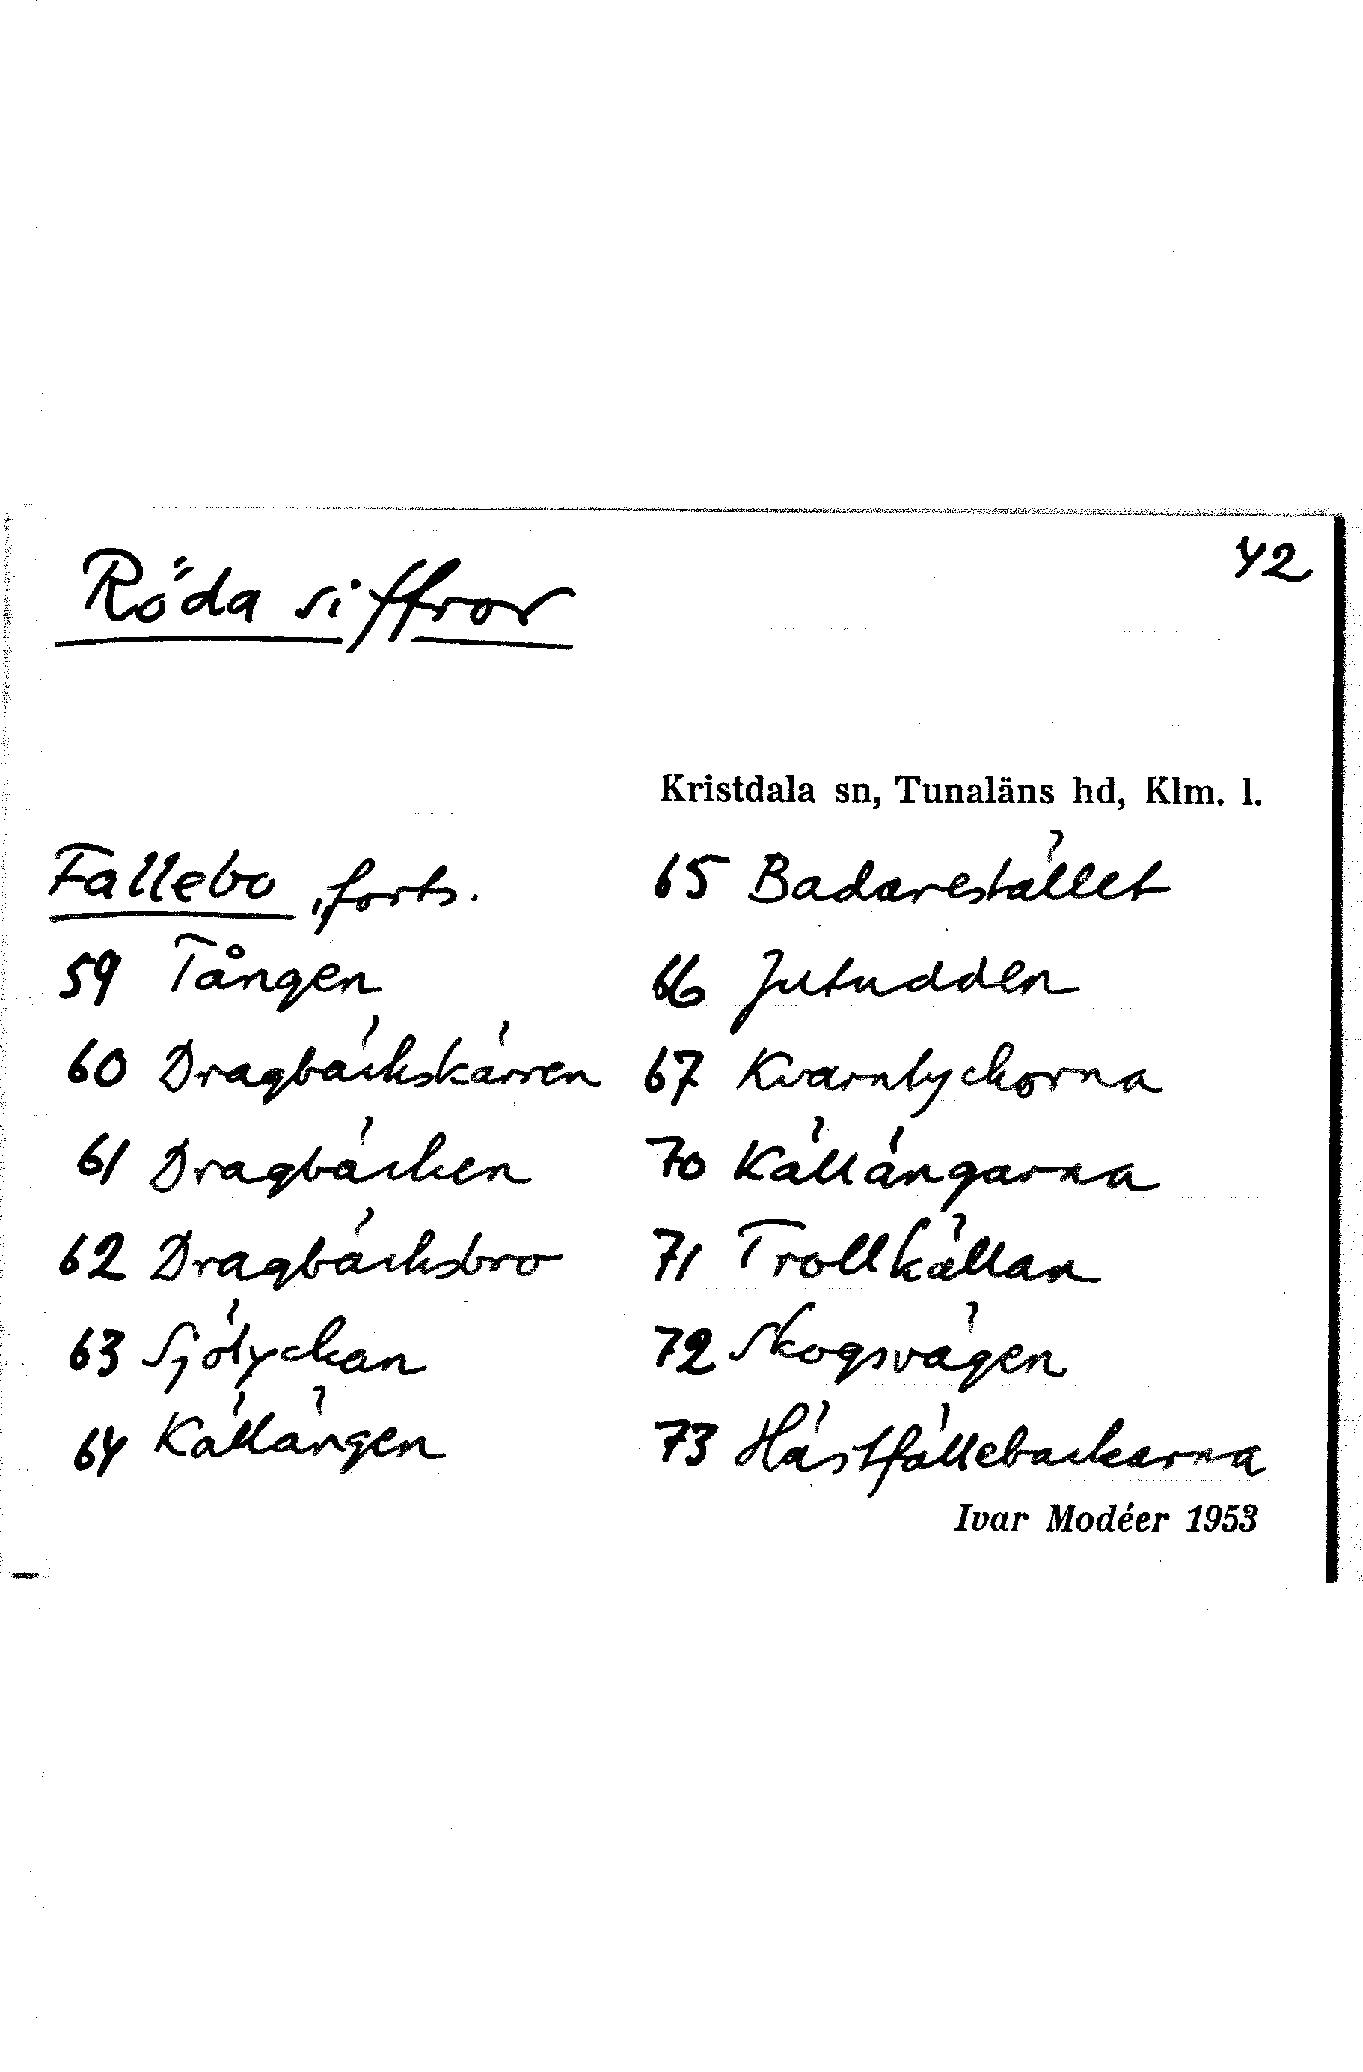 Röda siffror
42
Kristdala sn, Tunaläns hd, Klm. l.
Fallebo, forts.
59 Tången
60 Dragbäckskärren
61 Dragbäcken
62 Dragbäcksbro
63 Sjölyckan
64 Källängen
65 Badarestället
66 Jutudden
67 Kvarnlyckorna
70 Källängarna
71 Trollkällan
72 Skogsvägen
73 Hästfällebackarna
Ivar Modéer 1953